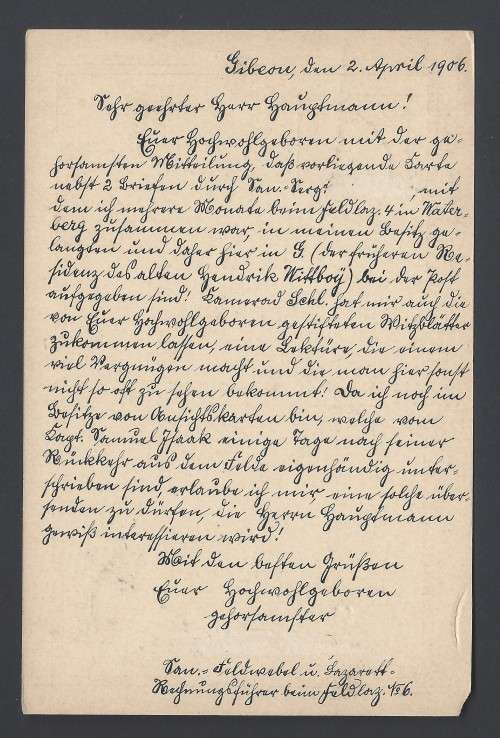 Gibeon, den 2. April 1906.
Sehr geehrter Herr Hauptmann!
Euer Hochwohlgeboren mit der ge-
horsamsten Mitteilung, daß vorliegende Carte
nebst 2 Briefen durch San.-Serg? , mit
dem ich mehrere Monate beim Feldlaz. 4 in Water-
berg zusammen war, in meinen Besitz ge-
langten und daher hier in G. (der früheren Re-
sidenz des alten Hendrik Wittboÿ) bei der Post
aufgegeben sind! Camerad Schl. hat mir auch die
von Euer Hochwohlgeboren gestifteten Witzblätter
zukommen lassen, eine Lektüre, die einem
viel Vergnügen macht und die man hier sonst
nicht so oft zu sehen bekommt! Da ich noch im
Besitze von Ansichtskarten bin, welche vom
Capt. Samuel Isaak einige Tage nach seiner
Rückkehr aus dem Felde eigenhändig unter-
schrieben sind, erlaube ich mir eine solche über-
senden zu dürfen, die Herrn Hauptmann
gewiß interessieren wird!
Mit den besten Grüßen
Euer Hochwohlgeboren
gehorsamster
San.-Feldwebel u. Lazarett-
Rechnungsführer beim Feldlaz. No 6.